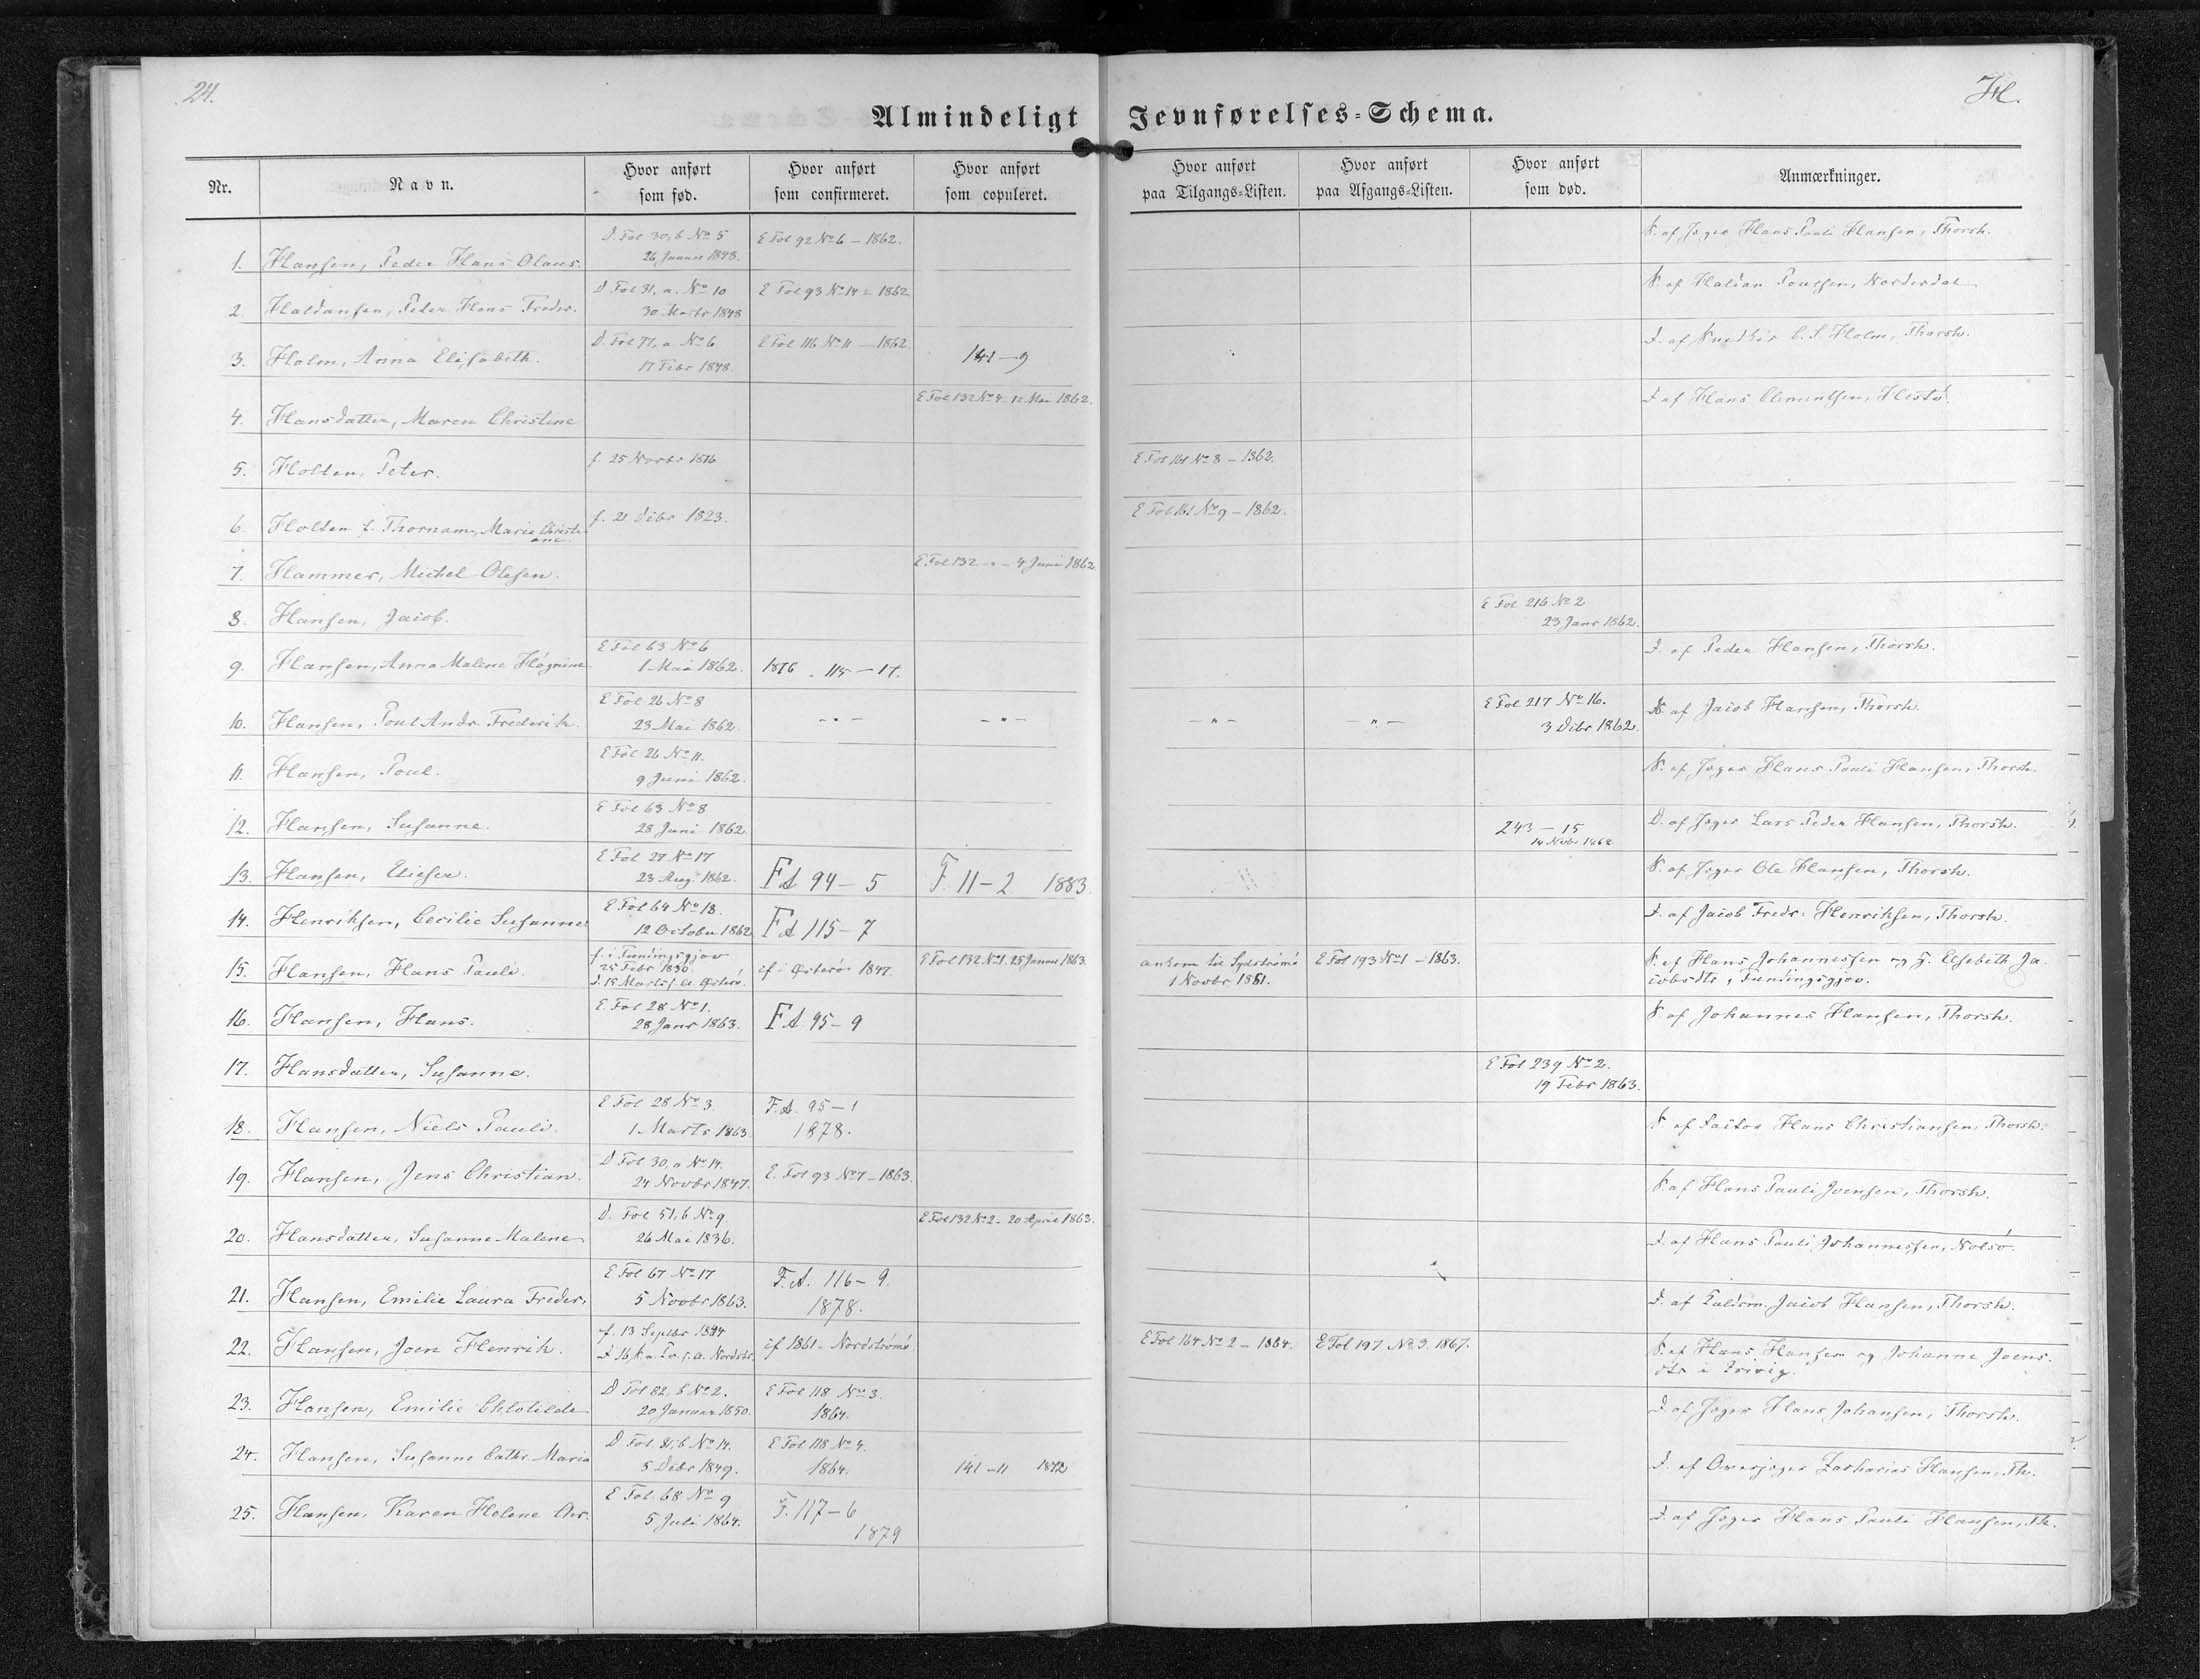 24.
H.
Almindeligt Jevnførelses-Schema.
Nr.
Navn.
Hvor anført som fød.
Hvor anført som confirmeret.
Hvor anført som copuleret.
Hvor anført paa Tilgangs-Listen.
Hvor anført paa Afgangs-Listen.
Hvor anført som død.
Anmærkninger.
1. Hansen, Peder Hans Olaus. D. Fol 30, b No 5 26 Januar 1848. E Fol 92 No 6 – 1862. S. af Jæger Hans Pauli Hansen, Thorsh.
2. Haldansen, Peter Hans Freder. D Fol 31, a. No 10 30 Marts 1848 E Fol 93 No 14 – 1862 S. af Haldan Poulsen, Norderdal
3. Holm, Anna Elisabeth. D. Fol 77, a No 6 17 Febr 1848. E Fol 116 No 11 – 1862. 141 – 9 D. af Snedker C. S. Holm, Thorsh.
4. Hansdatter, Maren Christine E Fol 132 No 4 12 Mai 1862. D af Hans Clementsen, Hestø.
5. Holten, Peter. f. 25 Novbr 1816 E Fol 161 No 8 – 1862.
6. Holten f. Thornam, Marie Christiane f. 21 Debr 1823. E Fol 161 No 9 – 1862.
7. Hammer, Michel Olesen. E Fol 132 – " – 4 Juni 1862
8. Hansen, Jacob. E Fol 216 No 2 23 Janr 1862.
9. Hansen, Anna Malene Høgnine E Fol 63 No 6 1 Mai 1862. 1876. 115 – 17. D. af Peder Hansen, Thorsh.
10. Hansen, Poul Andr. Frederik. E Fol 26 No 8 23 Mai 1862. – " – – " – – " – – " – E Fol 217 No 16. 3 Debr 1862. S. af Jacob Hansen, Thorsh.
11. Hansen, Poul. E Fol 26 No 11. 9 Juni 1862. S. af Jæger Hans Pauli Hansen, Thorsh.
12. Hansen, Susanne. E Fol 63 No 8 28 Juni 1862. 243 – 15 14 Novbr 1868 D. af Jæger Lars Peder Hansen, Thorsh.
13. Hansen, Elieser. E Fol 27 No 17 23 Aug. 1862. F.A 94 – 5 F. 11 – 2 1883. S. af Jæger Ole Hansen, Thorsh.
14. Henriksen, Cecilie Susanne E Fol 64 No 18. 12 October 1862 F A 115 – 7 D. af Jacob Fredr. Henriksen, Thorsh.
15. Hansen, Hans Pauli. f. i Fundingsgjov 25 Febr 1830. D. 15 Marts s. a. Østerø. cf – Østerø 1847. E Fol 132 No 1. 25 Januar 1863. ankom til Sydstrømø 1 Novbr 1861. E Fol 193 No 1 – 1863. S. af Hans Johannessen og H. Elsebeth Jacobsdtr, Fundingsgjov.
16. Hansen, Hans. E. Fol 28 No 1. 28 Janr 1863. F A 95 – 9 S. af Johannes Hansen, Thorsh.
17. Hansdatter, Susanne. E Fol 239 No 2. 19 Febr 1863.
18. Hansen, Niels Pauli. E Fol 28 No 3. 1 Marts 1863 F. A. 95 – 1 1878. S. af Factor Hans Christiansen, Thorsh.
19. Hansen, Jens Christian. D Fol 30, a No 14. 24 Novbr 1847. E. Fol 93 No 7 – 1863. S. af Hans Pauli Joensen, Thorsh.
20. Hansdatter, Susanne Malene D. Fol 51, b No 9. 26 Mai 1836. E Fol 132 No 2 – 20 April 1863. D. af Hans Pauli Johannessen, Nolsø.
21. Hansen, Emilie Laura Freder, E Fol 67 No 17 5 Novbr 1863. F. A. 116 – 9. 1878. D. af Jacob Hansen, Thorsh.
22. Hansen, Joen Henrik. f. 13 Septbr 1844 s. a. Nordstr. cf 1861 – Nordstrømø. E Fol 164 No 2 – 1864. E Fol 197 No 3. 1867. S. af Hans Hansen og Johanne Joensdtr i Qvivig.
23. Hansen, Emilie Chlotilde D Fol 82, b No 2. 20 Januar 1850. E Fol 118 No 3. 1864. D. af Jæger Hans Johansen, Thorsh.
24. Hansen, Susanne Cathr. Maria D Fol 81, b No 14. 5 Debr 1849. E Fol 118 No 4. 1864. 141 – 11 1872 D. af Overjæger Zacharias Hansen, Th.
25. Hansen, Karen Helene Chr. E Fol 68 No 9 5 Juli 1864. F. 117 – 6 1879 D. af Jæger Hans Pauli Hansen, Th.